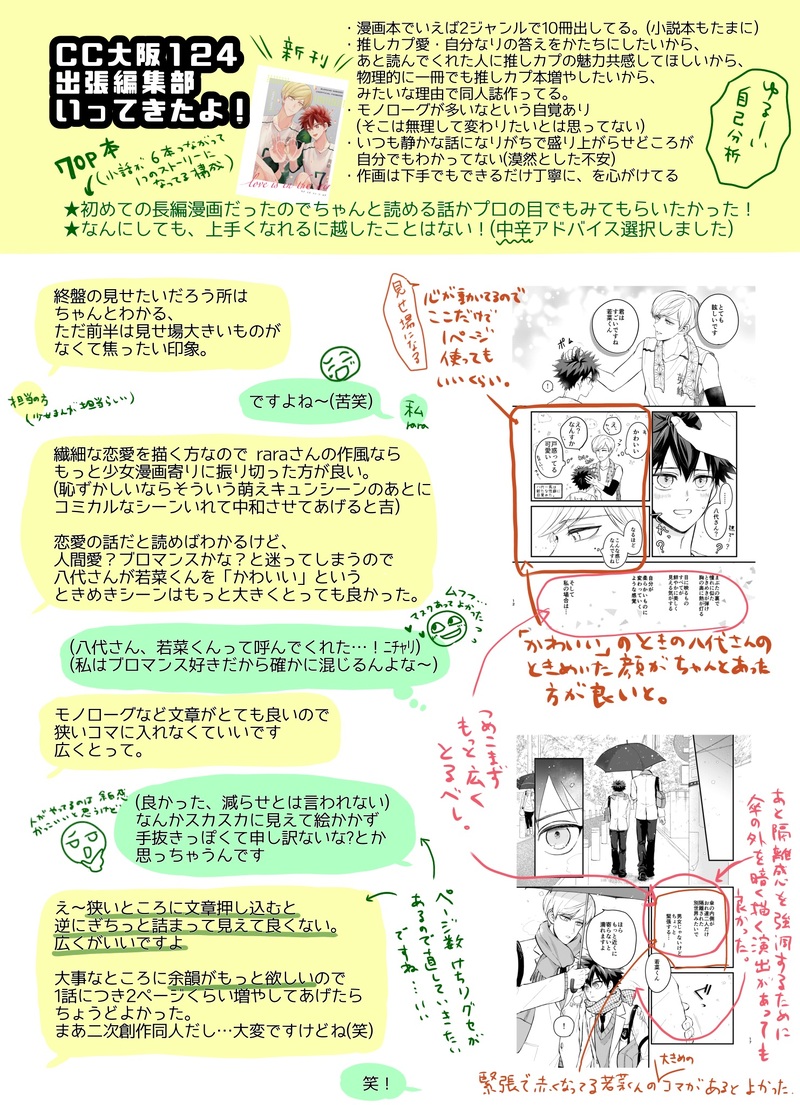 CC大阪124
出張編集部
いってきたよ！
新刊
love is in the
70P本
(小話が6本つながって
1つのストーリーに
なってる構成)
・漫画本でいえば2ジャンルで10冊出してる。(小説本もたまに)
・推しカプ愛・自分なりの答えをかたちにしたいから、
あと読んでくれた人に推しカプの魅力共感してほしいから、
物理的に一冊でも推しカプ本増やしたいから、
みたいな理由で同人誌作ってる。
・モノローグが多いなという自覚あり
(そこは無理して変わりたいとは思ってない)
・いつも静かな話になりがちで盛り上がらせどころが
自分でもわかってない(漠然とした不安)
・作画は下手でもできるだけ丁寧に、を心がけてる
ゆるーい
自己分析
★初めての長編漫画だったのでちゃんと読める話かプロの目でもみてもらいたかった！
★なんにしても、上手くなれるに越したことはない！(中辛アドバイス選択しました)
終盤の見せたいだろう所は
ちゃんとわかる、
ただ前半は見せ場大きいものが
なくて焦ったい印象。
担当の方
(少女まんが担当らしい)
ですよね〜(苦笑)
私
rara
繊細な恋愛を描く方なので raraさんの作風なら
もっと少女漫画寄りに振り切った方が良い。
(恥ずかしいならそういう萌えキュンシーンのあとに
コミカルなシーンいれて中和させてあげると吉)
恋愛の話だと読めばわかるけど、
人間愛？ブロマンスかな？と迷ってしまうので
八代さんが若菜くんを「かわいい」という
ときめきシーンはもっと大きくとっても良かった。
ムフフ…
マスクあってよかった
(八代さん、若菜くんって呼んでくれた…！ﾆﾁｬﾘ)
(私はブロマンス好きだから確かに混じるんよな〜)
モノローグなど文章がとても良いので
狭いコマに入れなくていいです
広くとって。
人がやってるのは余白感
かっこいいと思うけど…
(良かった、減らせとは言われない)
なんかスカスカに見えて絵かかず
手抜きっぽくて申し訳ないな？とか
思っちゃうんです
え〜狭いところに文章押し込むと
逆にぎちっと詰まって見えて良くない。
広くがいいですよ
大事なところに余韻がもっと欲しいので
1話につき2ページくらい増やしてあげたら
ちょうどよかった。
まあ二次創作同人だし…大変ですけどね(笑)
ページ数けちりグセが
あるので直していきたい
ですね……
笑！
見せ場になる
心が動いてるので
ここだけで
1ページ
使っても
いいくらい。
とても
眩しいです
君は
すごいですね
若菜くん
ポム
！
かわいい
え、
え？
なんすか
戸惑ってる
可愛い
なるほど
こんな感じ
なんですね
……
八代さん？
まぶたの裏で
憧れに似た
ときめきが弾け
胸の奥に熱が灯る
目に映るもの
すべてが
鮮やかに美しく
見える気がする
自分が
柔らかいものに
変わっていく
ような感覚
そして
私の場合は…
「かわいい」のときの八代さんの
ときめいた顔がちゃんとあった
方が良いと。
つめこまず
もっと広く
とるべし。
傘の内側が
おれ達二人だけ
隔離された
別世界みたいで
男女じゃないけど
ちょっと
緊張する…
ほら
もっと近くに
寄らないと
濡れますよ
若菜くん
！
あと隔離感を強調するために
傘の外を暗く描く演出があっても
良かった。
緊張で赤くなってる若菜くんの大きめのコマがあるとよかった.